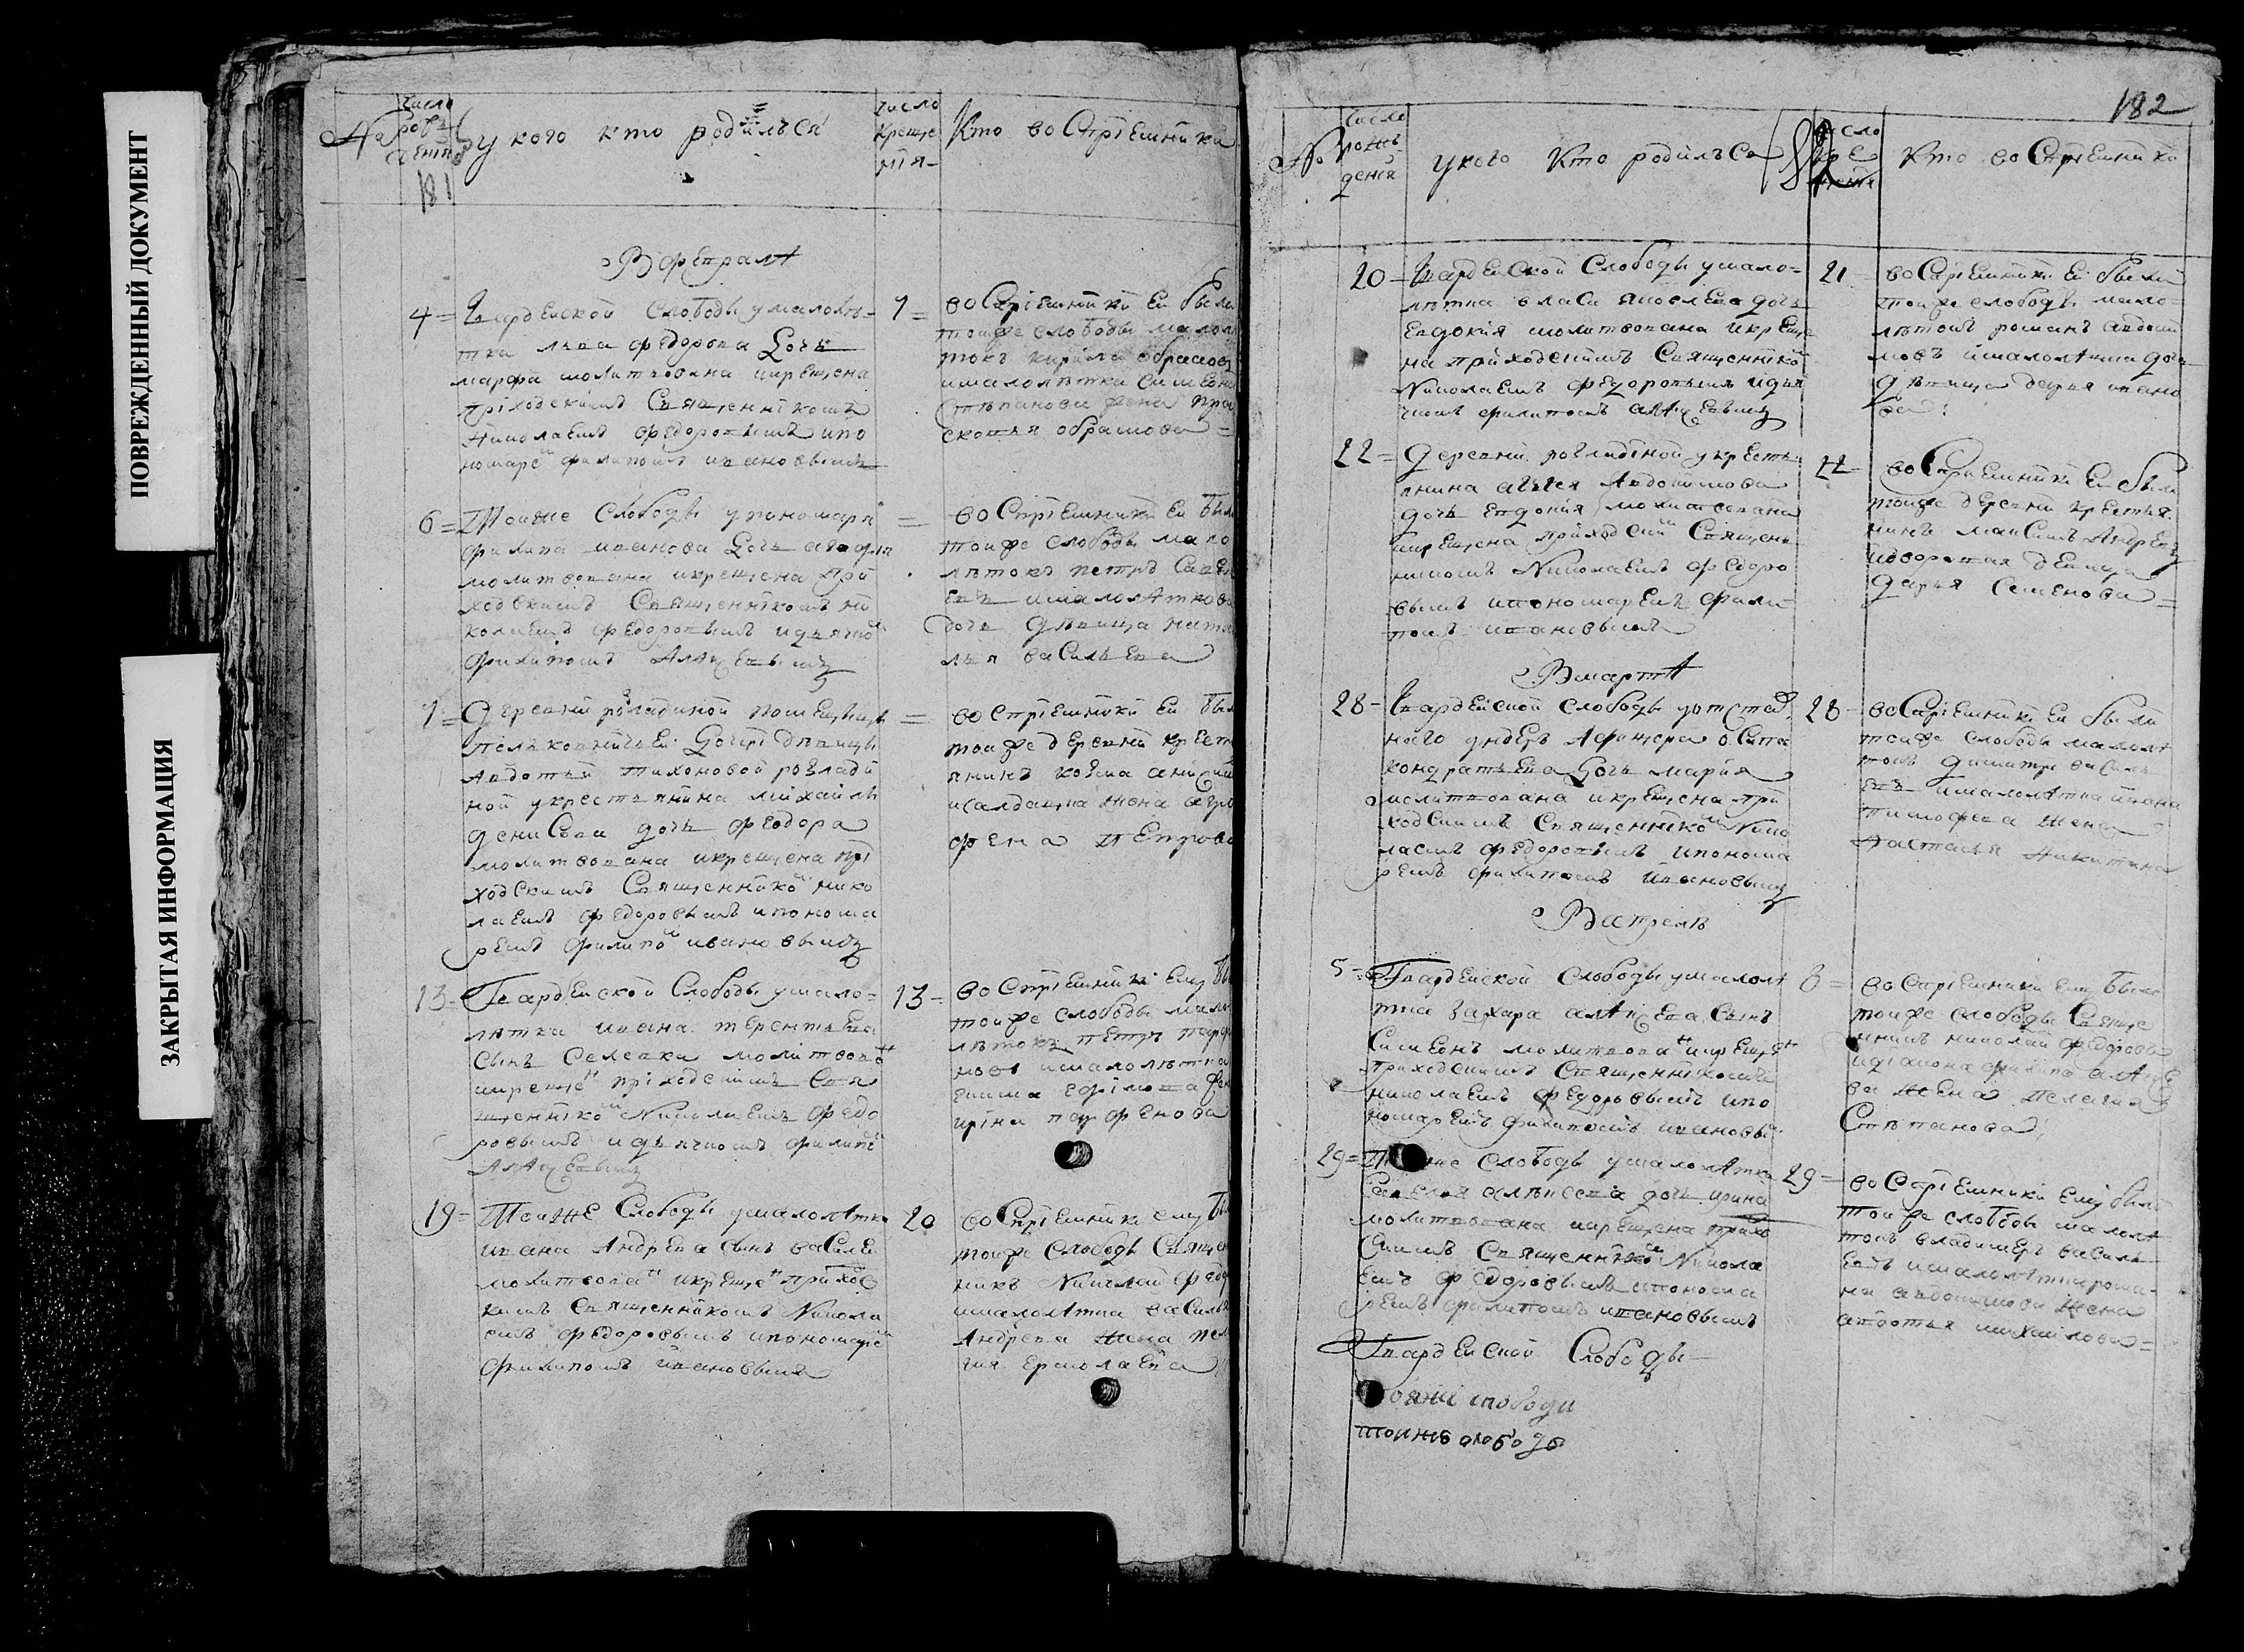 ПОВРЕЖДЕННЫЙ ДОКУМЕНТ
ЗАКРЫТАЯ ИНФОРМАЦИЯ
№
число
у кого кто родился
число
креще
ния
Кто воспрiемники
181
В феврале
4 = Гвардейской слободы у малолѣ-
тка льва федорова дочь
марфа молитвована и крещена
приходскимъ священникомъ
Николаемъ федоровымъ и по
номаре филипомъ ивановымъ
7 =
воспрiемники ей были
тоиже слободы малол
токъ
и малолѣтка симеона
степанова жена пра
сковья абрамова =
6 = Тоиже слободы у пономаря
филипа иванова дочь
молитвована и крещена при
ходскимъ священникомъ ни
колаемъ федоровымъ и дья
филипомъ алѣксеевымъ
=
воспрiемники ей были
тоиже слободы мало
лѣтокъ петръ
евъ и малолѣткова
дочь дѣвица ната
лья васильева
7 = деревни розладиной помещицы
дочери дѣвицы
авдотьи тихоновой розлади
ной у крестьянина михаилы
денисова дочь феодора
молитвована и крещена при
ходскимъ священнико нико
лаемъ федоровымъ и понома
ремъ филипо ивановымъ
=
воспрiемники ей были
тоиже деревни крест
янинъ козма
и салдацка жена агра
фена петрова
13 - Гвардейской слободы у мало-
лѣтка ивана терентьева
сынъ молитвова
и креще приходскимъ свя
щеннико Николаемъ федо
ровымъ и дьячкомъ филипо
алѣксеевымъ
13 =
воспрiемники ему бы
тоиже слободы мало
лѣтокъ петръ парф
новъ и малолѣтка
екима ефимова
ирина парфенова
19 = Тоиже слободы у малолѣтка
ивана андрева сынъ василеи
молитвова и креще приход
кимъ священникомъ Никола
емъ федоровымъ и пономаре
филипомъ ивановымъ
20
воспрiемники ему бы
тоиже слободы священ
никъ Николай федо
и малолѣтка василья
андрева жена пела
гия ермолаева
182
№
число
рожъ
дения
у кого кто родился
число
кто воспрiемники
20 = Гвардейской слободы у мало-
лѣтка власа яковлева дочь
евдокия молитвована и креще
на приходскимъ священнико
Николаемъ федоровымъ и дья
чкомъ филипомъ алѣксеевымъ
21 =
воспрiемники ей были
тоиже слободы мало-
лѣтокъ романъ авдоки
мовъ и малолѣтка дочь
дѣвица дарья ивано
ва
22 = деревни розладиной у кресть
янина авдокимова
дочь евдокия молитвована
и крещена приходски священ
никомъ Николаемъ федоро
вымъ и пономаремъ фили
помъ ивановымъ
22
воспрiемники ей были
тоиже деревни крестья
нинъ максимъ андреевъ
и дворовая девица
дарья семенова =
В марте
28 - Гвардейской слободы у отстав
наго ундеръ афицера осипа
кондратьева дочь мария
молитвована и крещена при
ходскимъ священнико Нико
лаемъ федоровымъ и понома
ремъ филипомъ ивановымъ
28
воспрiемники ей были
тоиже слободы малолѣ
токъ димитри василь
евъ и малолѣтка ивана
тимофева жена
настасья никитина
В апреле
5 = Гвардейской слободы у малолѣ
тка захара алѣксева сынъ
симеонъ молитвова и креще
приходскимъ священникомъ
николаемъ федоровымъ и по
номаремъ филипомъ ивановы
воспрiемники ему были
тоиже слободы свяще
нникъ николаи федоровъ
и дiакона филипа алѣксе
ва жена пелагия
степанова
29 = слободы у малолѣтка
алѣксева дочь ирина
молитвована и крещена прихо
скимъ священнико Никола
емъ федоровымъ и понома
ремъ филипомъ ивановымъ
29 =
воспрiемники ему были
тоиже слободы малолѣ
токъ владимеръ василь
евъ и малолѣтки рома-
на авдокимова жена
авдотья михаилова =
Гвардейской слободы
слободы
тоиже слободы